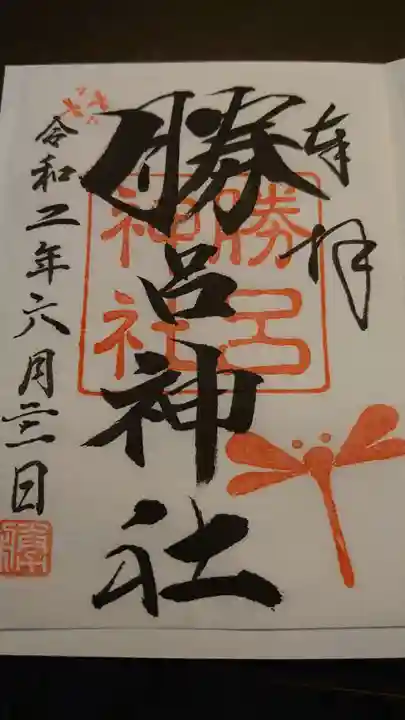 奉拝
勝呂神社
勝呂
神社
令和二年六月二三日